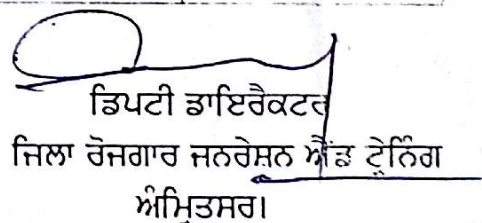 ਡਿਪਟੀ ਡਾਇਰੈਕਟਰ
ਜਿਲਾ ਰੋਜਗਾਰ ਜਨਰੇਸ਼ਨ ਐਂਡ ਟ੍ਰੇਨਿੰਗ
ਅੰਮ੍ਰਿਤਸਰ।